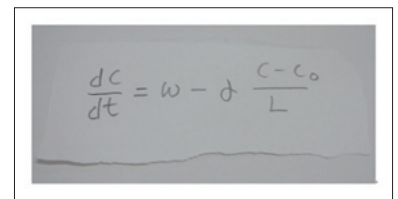 dc/dt = ω - ∂ (c - c₀)/L